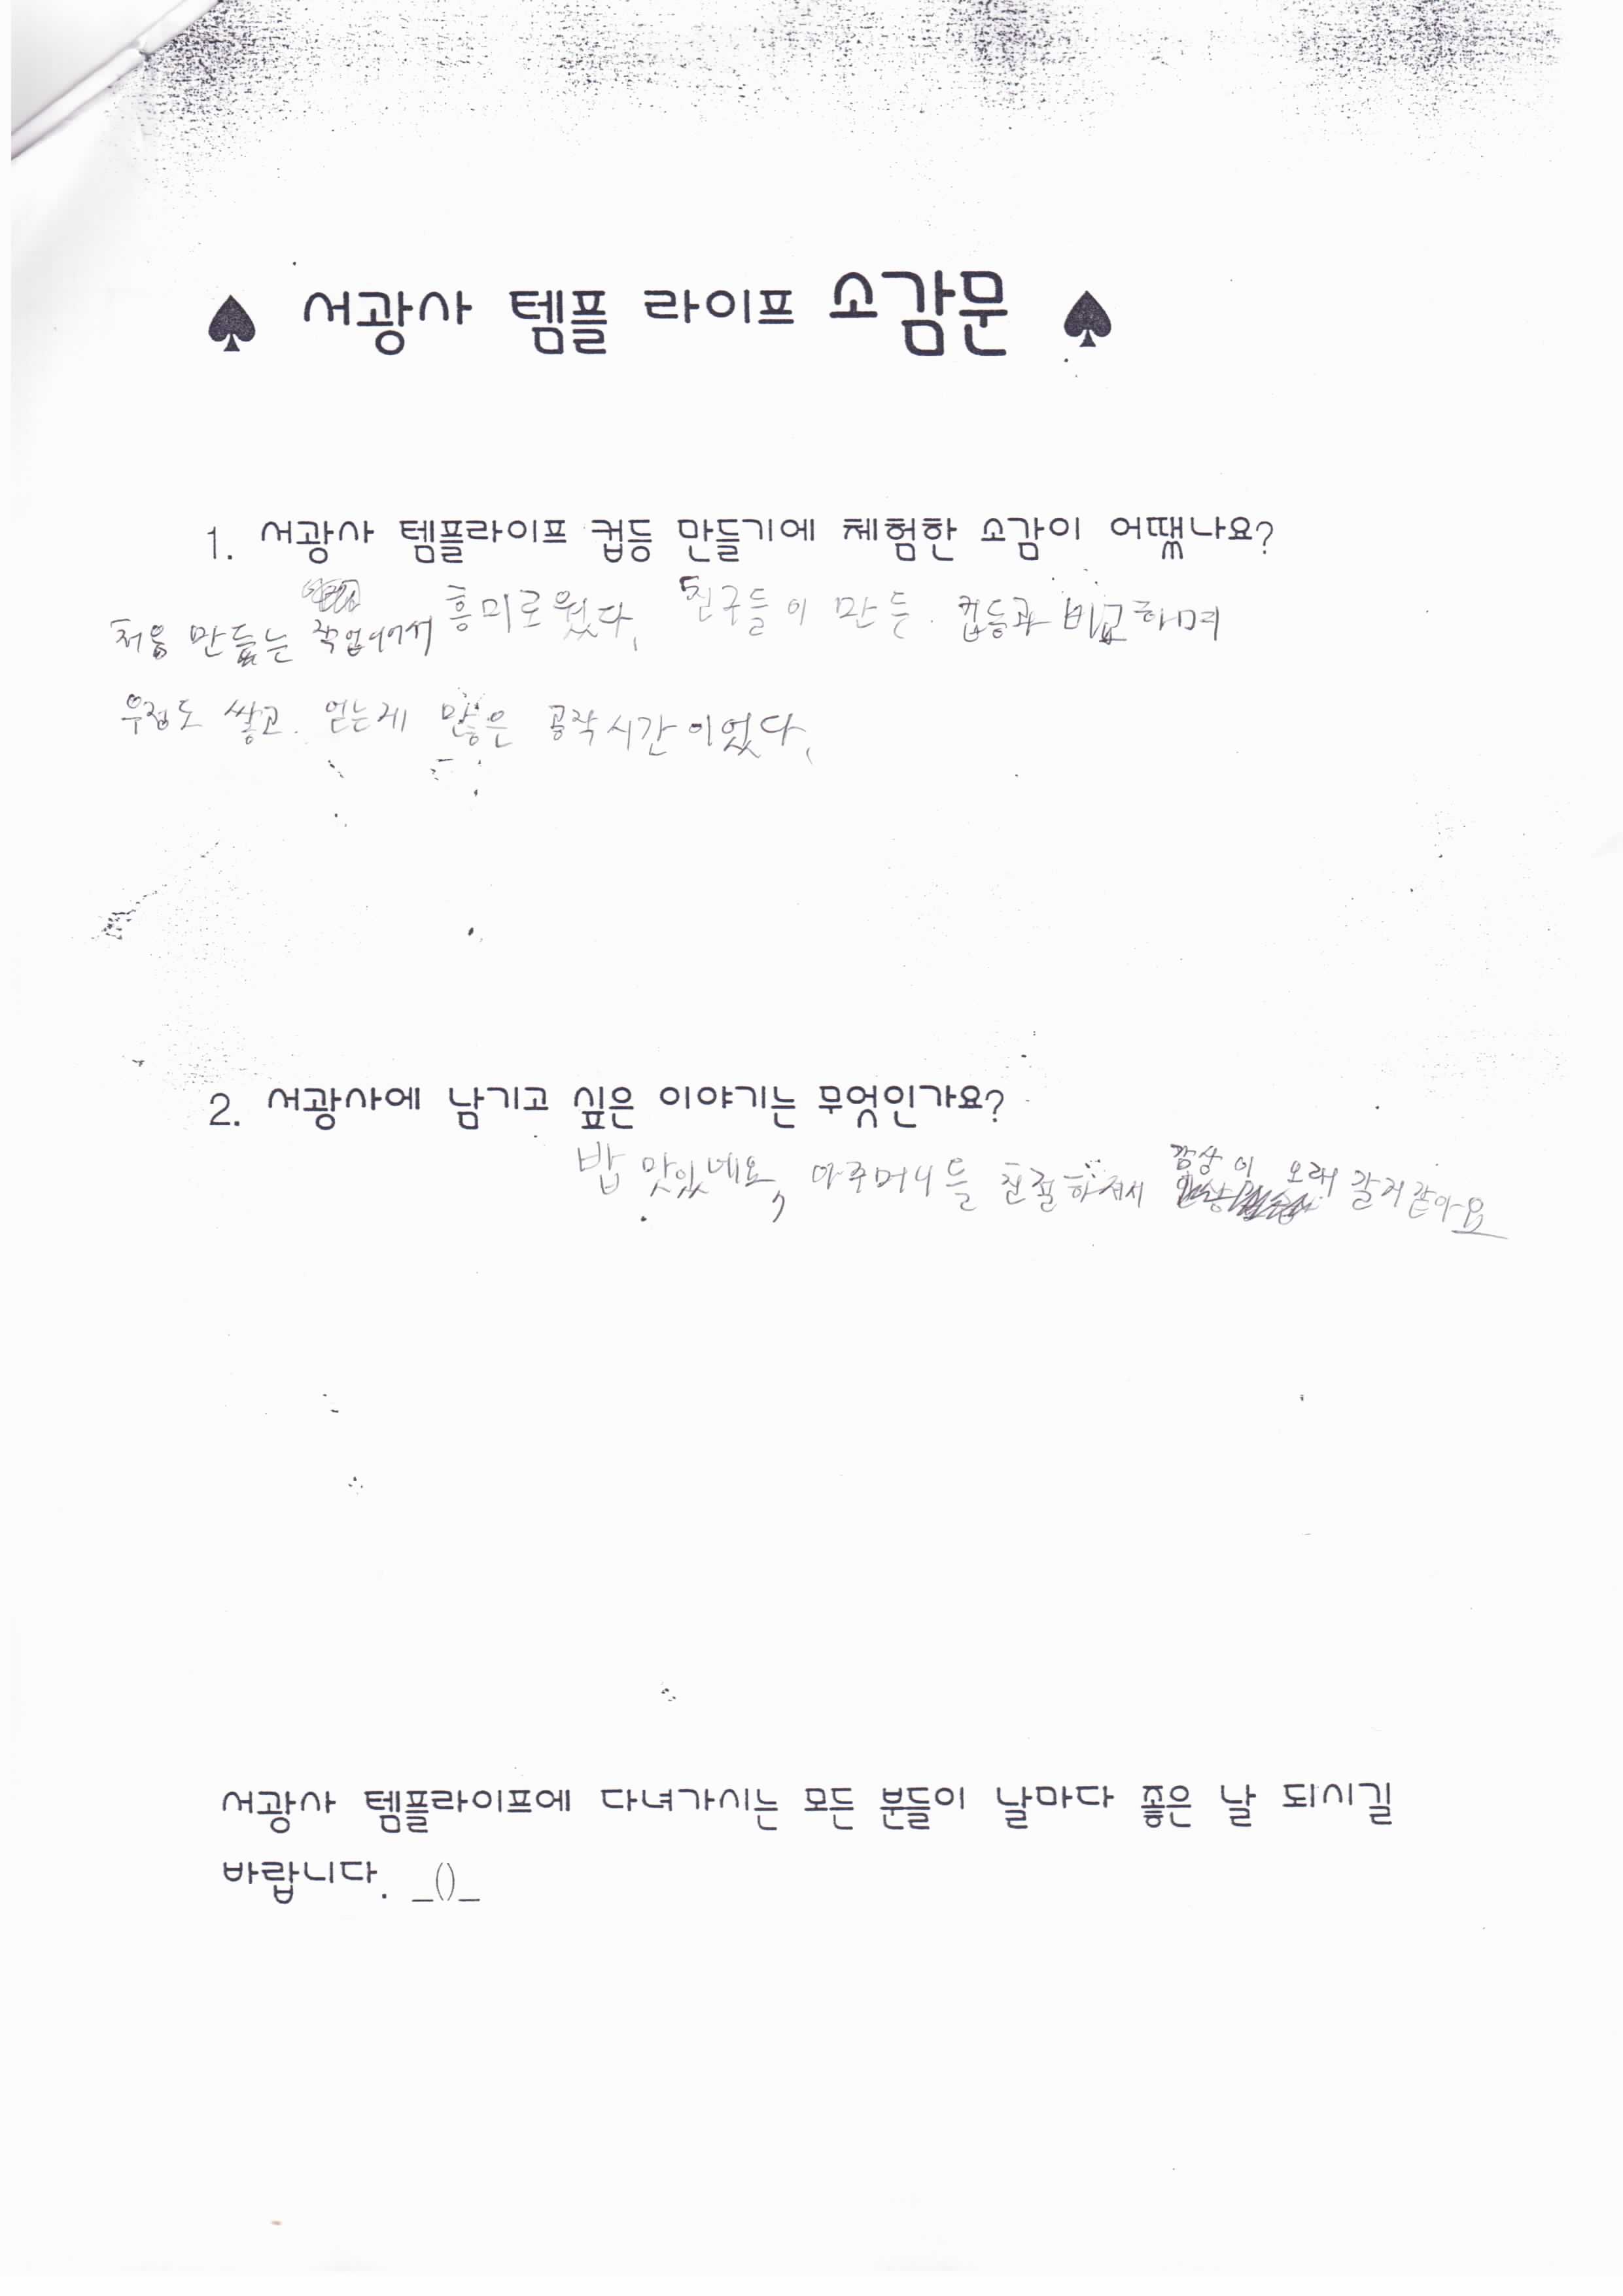 ♠ 서광사 템플 라이프 소감문 ♠
1. 서광사 템플라이프 컵등 만들기에 체험한 소감이 어땠나요?
처음 만듧는 작업이어서 흥미로웠다. 친구들이 만든 컵등과 비교하며
우정도 쌓고 얻는게 많은 공작시간이었다.
2. 서광사에 남기고 싶은 이야기는 무엇인가요?
밥 맛있네요, 아주머니들 친절하셔서 감상이 오래 갈거같아요
서광사 템플라이프에 다녀가시는 모든 분들이 날마다 좋은 날 되시길
바랍니다. _()_